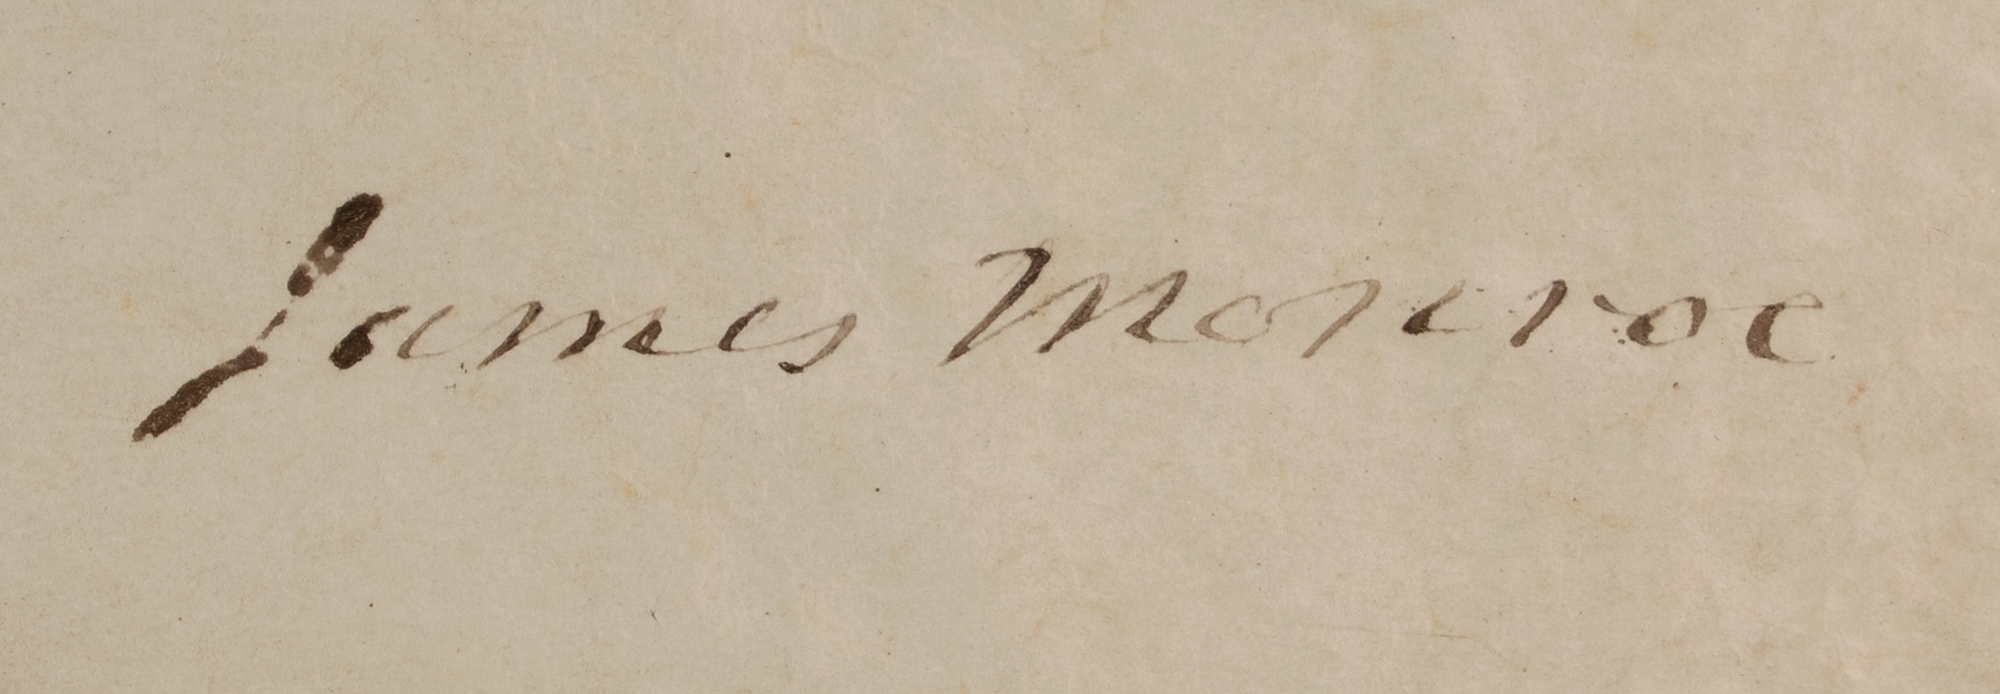 James Monroe